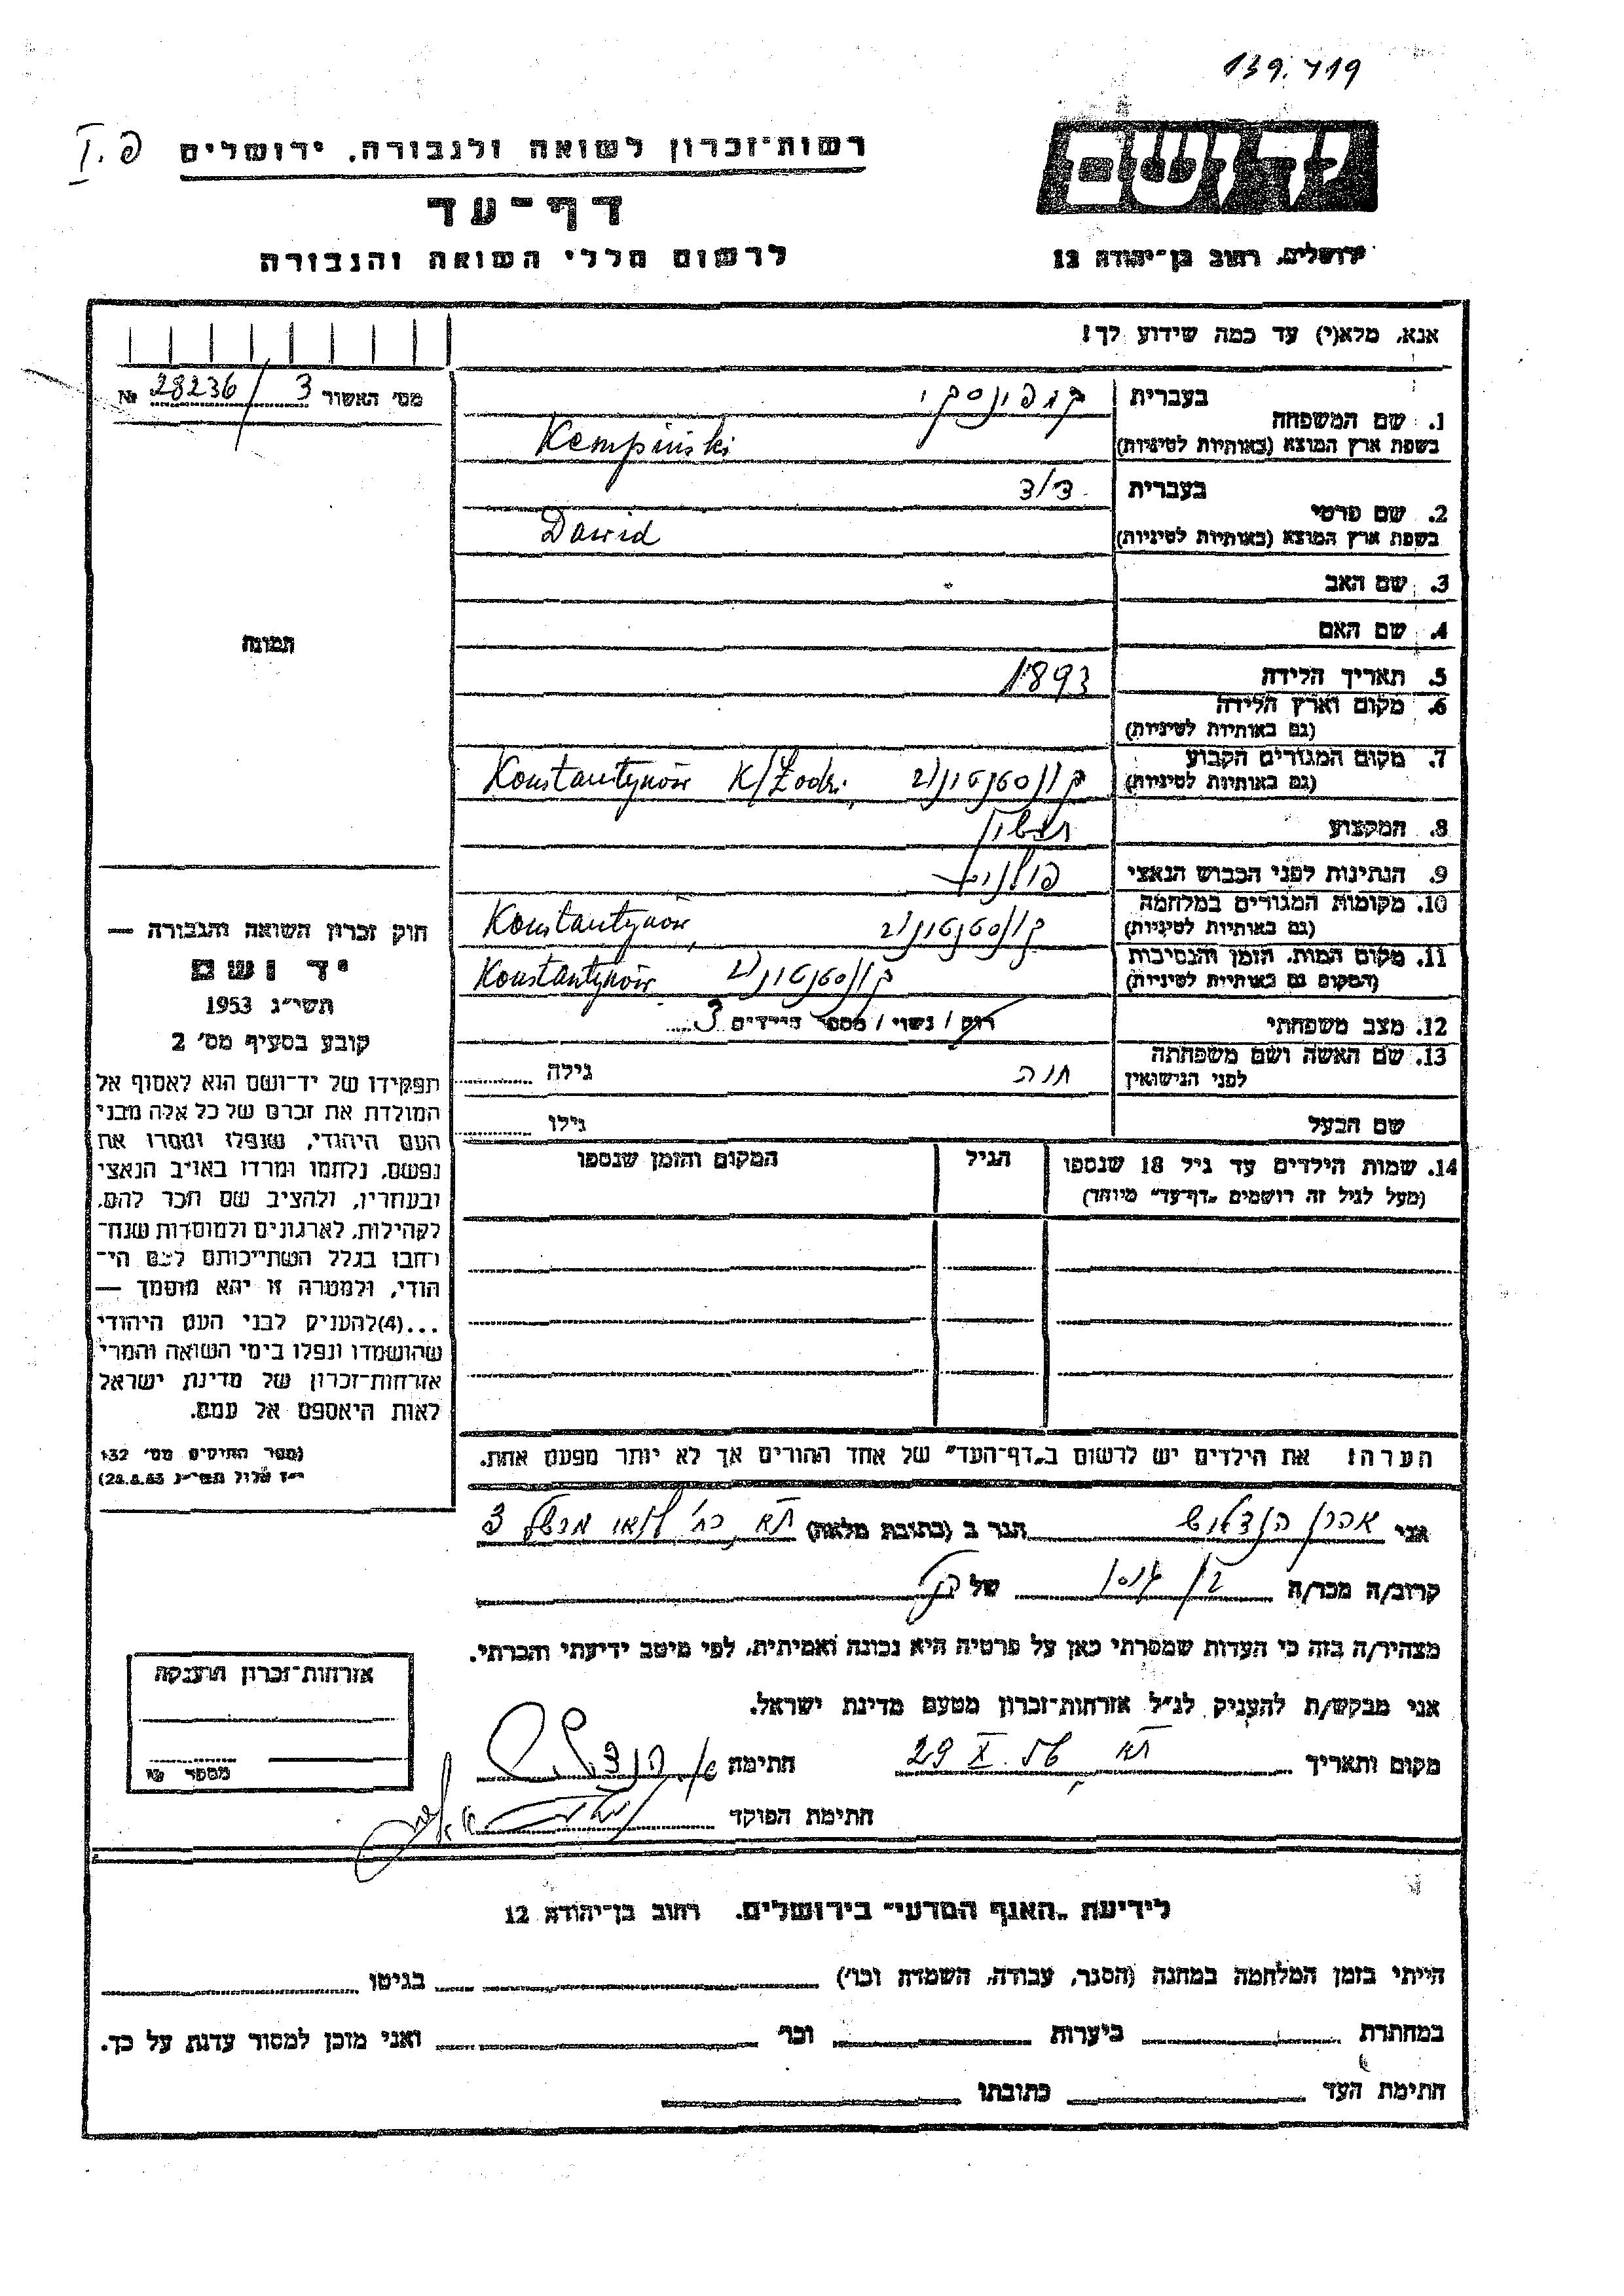 139.419
רשות־זכרון לשואה ולגבורה, ירושלים
פ.I
דף־עד
לרשום חללי השואה והגבורה
יד ושם
ירושלים, רחוב בן־יהודה 12
אנא, מלא(י) עד כמה שידוע לך!
מס׳ האשור 3 / 28236 №
1. שם המשפחה
בעברית קמפינסקי
בשפת ארץ המוצא (באותיות לטיניות) Kempiński
2. שם פרטי
בעברית דוד
בשפת ארץ המוצא (באותיות לטיניות) Dawid
3. שם האב
4. שם האם
תמונה
5. תאריך הלידה 1893
6. מקום וארץ הלידה
(גם באותיות לטיניות)
7. מקום המגורים הקבוע
(גם באותיות לטיניות) קונסטנטונוב Konstantynów K/Łodzi
8. המקצוע
9. הנתינות לפני הכבוש הנאצי פולנית
10. מקומות המגורים במלחמה
(גם באותיות לטיניות) קונסטנטונוב Konstantynów
11. מקום המות, הזמן והנסיבות
(המקום גם באותיות לטיניות) קונסטנטונוב Konstantynów
12. מצב משפחתי רווק / נשוי / מספר הילדים 3
13. שם האשה ושם משפחתה
לפני הנישואין חוה גילה
שם הבעל גילו
14. שמות הילדים עד גיל 18 שנספו הגיל המקום והזמן שנספו
(מעל לגיל זה רושמים „דף־עד” מיוחד)
הערה! את הילדים יש לרשום ב„דף־העד” של אחד ההורים אך לא יותר מפעם אחת.
חוק זכרון השואה והגבורה —
יד ושם
תשי״ג 1953
קובע בסעיף מס׳ 2
תפקידו של יד־ושם הוא לאסוף אל
המולדת את זכרם של כל אלה מבני
העם היהודי, שנפלו ומסרו את
נפשם, נלחמו ומרדו באויב הנאצי
ובעוזריו, ולהציב שם וזכר להם,
לקהילות, לארגונים ולמוסדות שנח־
רבו בגלל השתייכותם לעם הי־
הודי, ולמטרה זו יהא מוסמך —
...(4)להעניק לבני העם היהודי
שהושמדו ונפלו בימי השואה והמרי
אזרחות־זכרון של מדינת ישראל
לאות היאספם אל עמם.
(ספר החוקים מס׳ 132
י״ז אלול תשי״ג 28.8.53)
אני אהרן הנדלס הגר ב (כתובת מלאה) תא, רח׳ 3
קרוב/ה מכר/ה של
מצהיר/ה בזה כי העדות שמסרתי כאן על פרטיה היא נכונה ואמיתית, לפי מיטב ידיעתי והכרתי.
אני מבקש/ת להעניק לנ״ל אזרחות־זכרון מטעם מדינת ישראל.
מקום ותאריך תא, 29 X 56 חתימה
חתימת הפוקד
אזרחות־זכרון הוענקה
מספר
לידיעת „האגף המדעי” בירושלים, רחוב בן־יהודה 12
הייתי בזמן המלחמה במחנה (הסגר, עבודה, השמדה וכו׳) בגיטו
במחתרת ביערות וכו׳ ואני מוכן למסור עדות על כך.
חתימת העד כתובתו